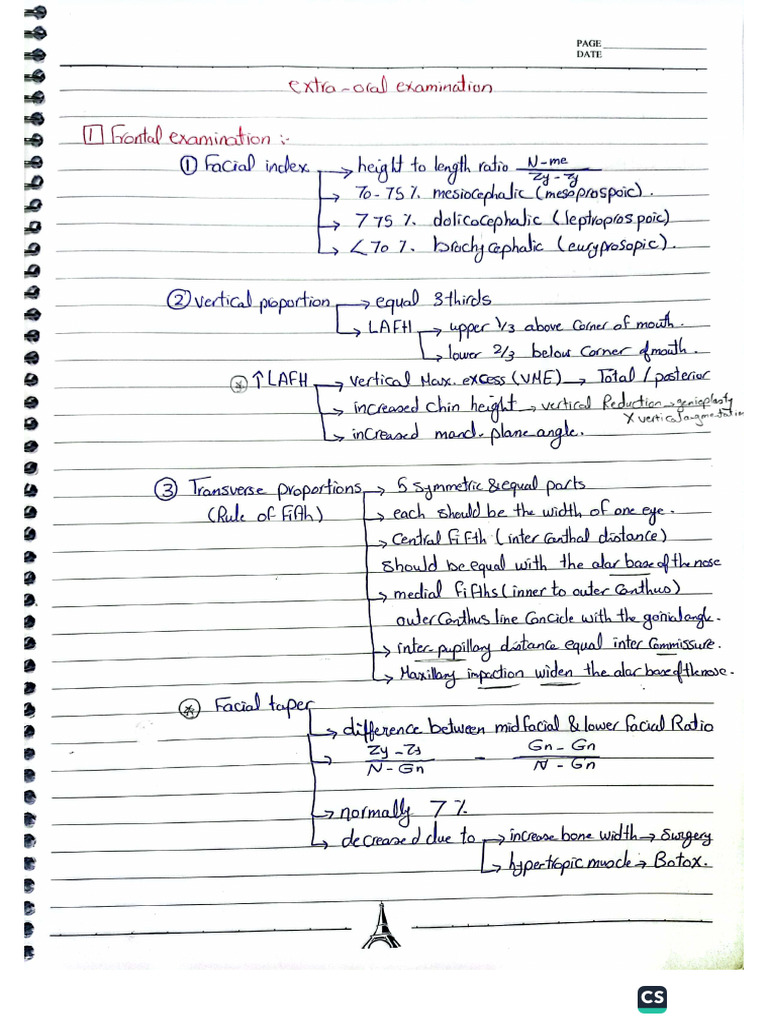 PAGE
DATE
extra-oral examination
1 Frontal examination :-
① Facial index → height to length ratio N-me / Zy-Zy
→ 70-75 % mesiocephalic (mesoprospoic).
→ 775 % dolicocephalic (leptropros poic)
→ <70 % brachycephalic (euryprosopic).
② vertical proportion → equal 3 thirds
→ LAFH → upper 1/3 above corner of mouth.
→ lower 2/3 below corner of mouth.
* ↑LAFH → vertical Max. excess (VME) → Total / posterior
→ increased chin height → vertical Reduction → genioplasty
X vertical augmentation
→ increased mand. plane angle.
③ Transverse proportions → 5 symmetric & equal parts
(Rule of Fifth) → each should be the width of one eye.
→ Central fifth (inter canthal distance)
should be equal with the alar base of the nose
→ medial fifths (inner to outer canthus)
outer canthus line concide with the gonial angle.
→ inter-pupillary distance equal inter commissure.
→ Maxillary impaction widen the alar base of the nose.
* Facial taper
→ difference between midfacial & lower facial Ratio
→ Zy-Zy / N-Gn - Gn-Gn / N-Gn
→ normally 7 %
→ decreased due to → increase bone width → surgery
→ hypertropic muscle → Botox.
CS